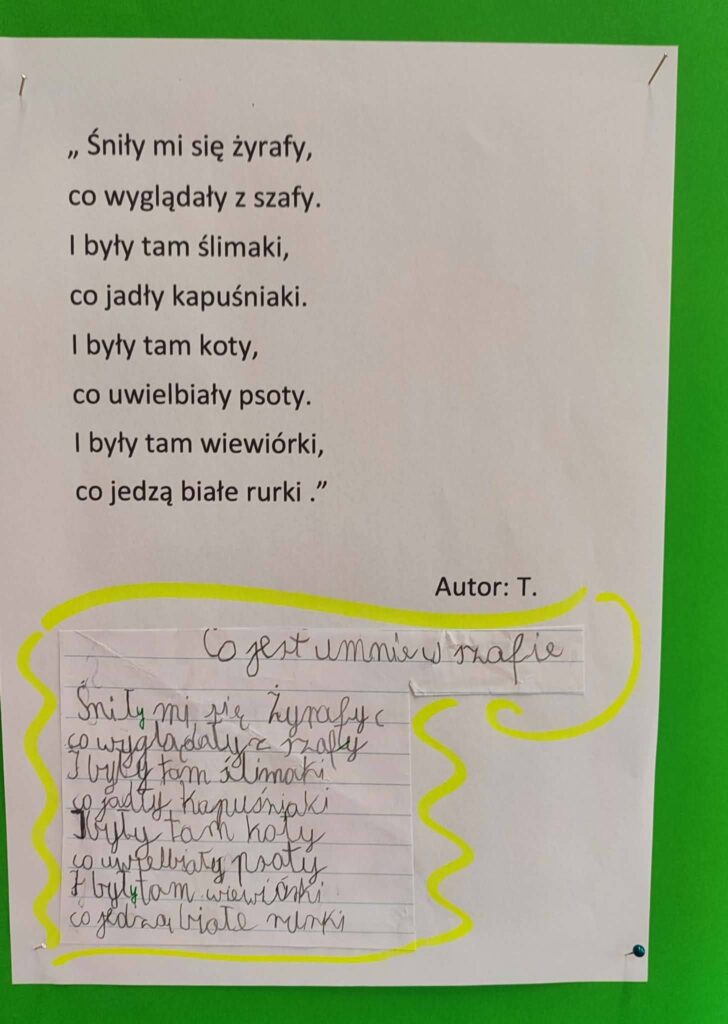 „ Śniły mi się żyrafy,
co wyglądały z szafy.
I były tam ślimaki,
co jadły kapuśniaki.
I były tam koty,
co uwielbiały psoty.
I były tam wiewiórki,
co jedzą białe rurki .”
Autor: T.
Co jest u mnie w szafie
Śniły mi się Żyrafy
co wyglądały z szafy
I były tam ślimaki
co jadły kapuśniaki
I były tam koty
co uwielbiały psoty
I były tam wiewiórki
co jedzą białe rurki